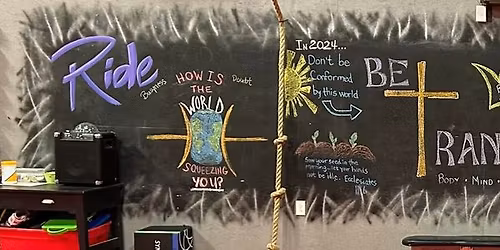 Ride
Busyness
HOW IS
THE
WORLD
SQUEEZING
YOU?
Doubt
In 2024...
Don't be
Conformed
by this world
Sow your seed in the
morning...let your hands
not be idle. Ecclesiastes
BE
TRAN
BODY • MIND •